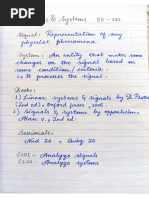 s & Systems EE-232
Signal: Representation of any
physical phenomena
System: An entity that makes some
changes on the signal based on
some condition/criteria.
↳ It process the signal.
Books:
1) Linear systems & signals by
(2nd ed), Oxford press, 2005
2) Signals & systems by oppenheim,
Alan v., 2nd ed
Sessionals:
Mid 20 + Quiz 20
CLO1 - Analyze signals
CLO2 - Analyze systems